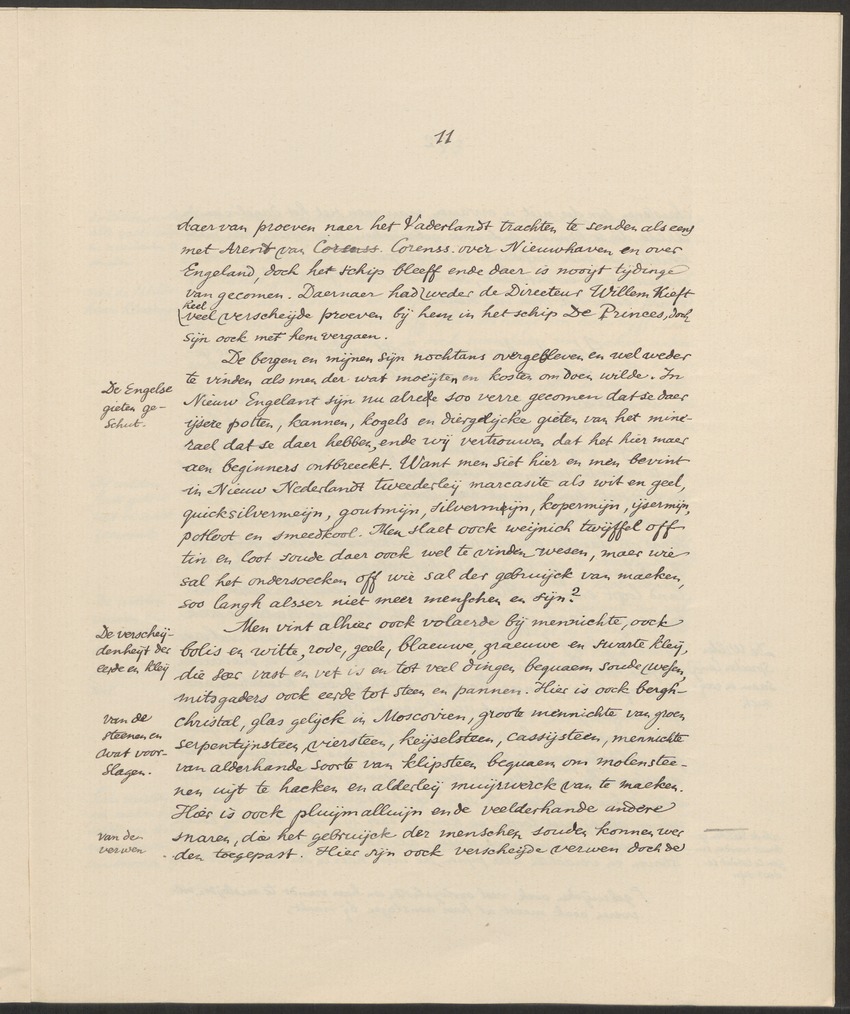 11
daer van proeven naer het Vaderlandt trachten te senden als eens
met Arendt van Corenss. Corenss. over Nieuwhaven en over
Engeland, doch het schip bleeff ende daer is nooijt tijdinge
van gecomen. Daernaer had weder de Directeur Willem Kieft
heel
veel verscheijde proeven bij hem in het schip De Princes, doch
sijn oock met hem vergaen.
De bergen en mijnen sijn nochtans overgebleven en wel weder
te vinden als men der wat moeijten en kosten om doen wilde. In
De Engelse
gieten ge-
schut.
Nieuw Engelant sijn nu alrede soo verre gecomen dat se daer
ijsere potten, kannen, kogels en diergelijcke gieten van het mine-
rael dat se daer hebben, ende wij vertrouwen dat het hier maer
aen beginners ontbreeckt. Want men siet hier en men bevint
in Nieuw Nederlandt tweederleij marcasite als wit en geel,
quicksilvermeijn, goutmijn, silvermijn, kopermijn, ijsermijn,
potloot en smeedkool. Men slaet oock weijnich twijffel off
tin en loot soude daer oock wel te vinden wesen, maer wie
sal het ondersoecken off wie sal der gebruijck van maeken,
soo langh alsser niet meer menschen en sijn?
Men vint alhier oock volaerde bij mennichte, oock
De verscheij-
denheijt der
eerde en kleij
bolis en witte, rode, geele, blaeuwe, graeuwe en swarte kleij,
die seer vast en vet is en tot veel dingen bequaem soude wesen,
mitsgaders oock eerde tot steen en pannen. Hier is oock bergh-
van de
steenen en
wat voor-
slagen.
christal, glas gelijck in Moscovien, groote mennichte van groen
serpentijnsteen, viersteen, keijselsteen, cassijsteen, mennichte
van alderhande soorte van klipsteen bequaem om molenstee-
nen uijt te hacken en alderleij muijrwerck van te maeken.
Hier is oock pluijmalluijn ende veelderhande andere
van de
verwen
snaren, die het gebruijck der menschen souden konnen wer
den toegepast. Hier sijn oock verscheijde verwen doch de